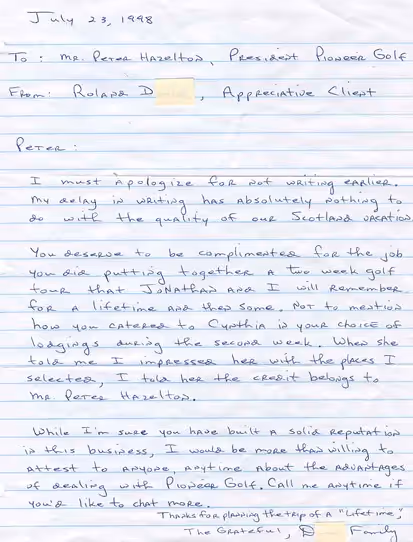 July 23, 1998
To: Mr. Peter Hazelton, President Pioneer Golf
From: Roland D , Appreciative Client
Peter:
I must apologize for not writing earlier.
My delay in writing has absolutely nothing to
do with the quality of our Scotland vacation.
You deserve to be complimented for the job
you did putting together a two week golf
tour that Jonathan and I will remember
for a lifetime and then some. Not to mention
how you catered to Cynthia in your choice of
lodgings during the second week. When she
told me I impressed her with the places I
selected, I told her the credit belongs to
Mr. Peter Hazelton.
While I'm sure you have built a solid reputation
in this business, I would be more than willing to
attest to anyone, anytime about the advantages
of dealing with Pioneer Golf. Call me anytime if
you'd like to chat more.
Thanks for planning the trip of a "Lifetime",
The Grateful, D Family